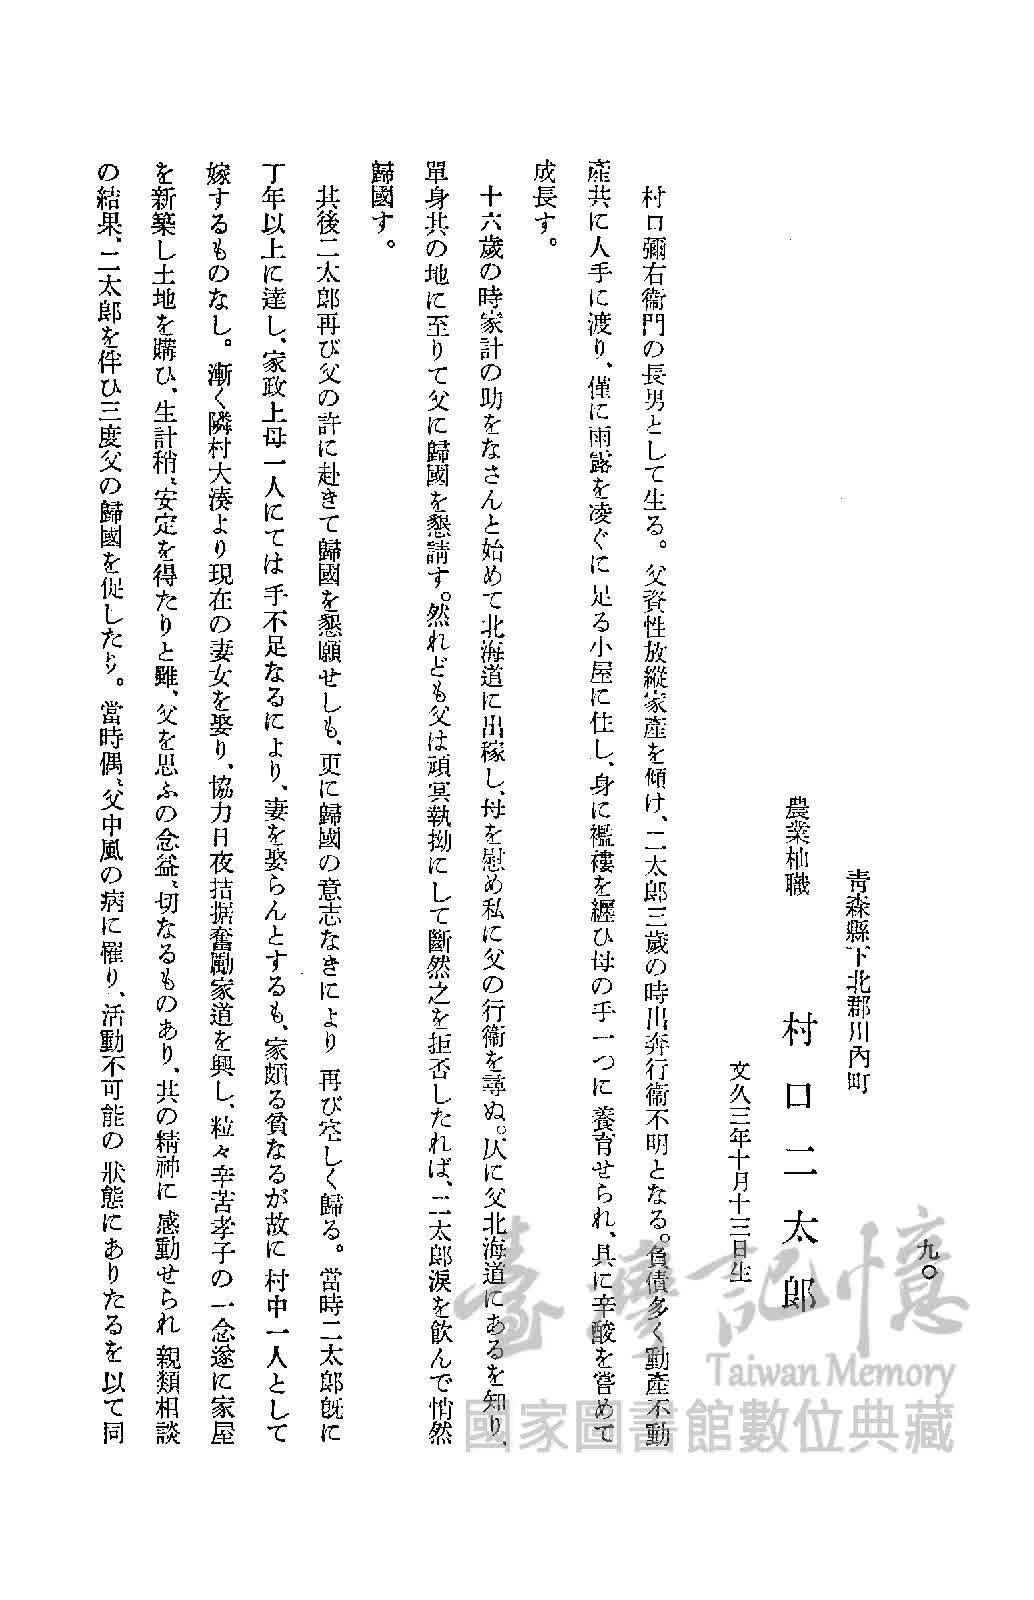 九〇
青森縣下北郡川內町
農業杣職　村口二太郎
文久三年十月十三日生
村口彌右衞門の長男として生る。父資性放縱家產を傾け、二太郎三歲の時出奔行衞不明となる。負債多く動產不動
產共に人手に渡り、僅に雨露を凌ぐに足る小屋に住し、身に襤褸を纒ひ母の手一つに養育せられ、具に辛酸を嘗めて
成長す。
十六歲の時家計の助をなさんと始めて北海道に出稼し、母を慰め私に父の行衞を尋ぬ。仄に父北海道にあるを知り、
單身其の地に至りて父に歸國を懇請す。然れども父は頑冥執拗にして斷然之を拒否したれば、二太郎淚を飮んで悄然
歸國す。
其後二太郎再び父の許に赴きて歸國を懇願せしも、更に歸國の意志なきにより再び空しく歸る。當時二太郎旣に
丁年以上に達し、家政上母一人にては手不足なるにより、妻を娶らんとするも、家頗る貧なるが故に村中一人として
嫁するものなし。漸く隣村大湊より現在の妻女を娶り、協力日夜拮据奮勵家道を興し、粒々辛苦孝子の一念遂に家屋
を新築し土地を購ひ、生計稍〻安定を得たりと雖、父を思ふの念益〻切なるものあり、其の精神に感動せられ親類相談
の結果、二太郎を伴ひ三度父の歸國を促したり。當時偶〻父中風の病に罹り、活動不可能の狀態にありたるを以て同
臺灣記憶
Taiwan Memory
國家圖書館數位典藏